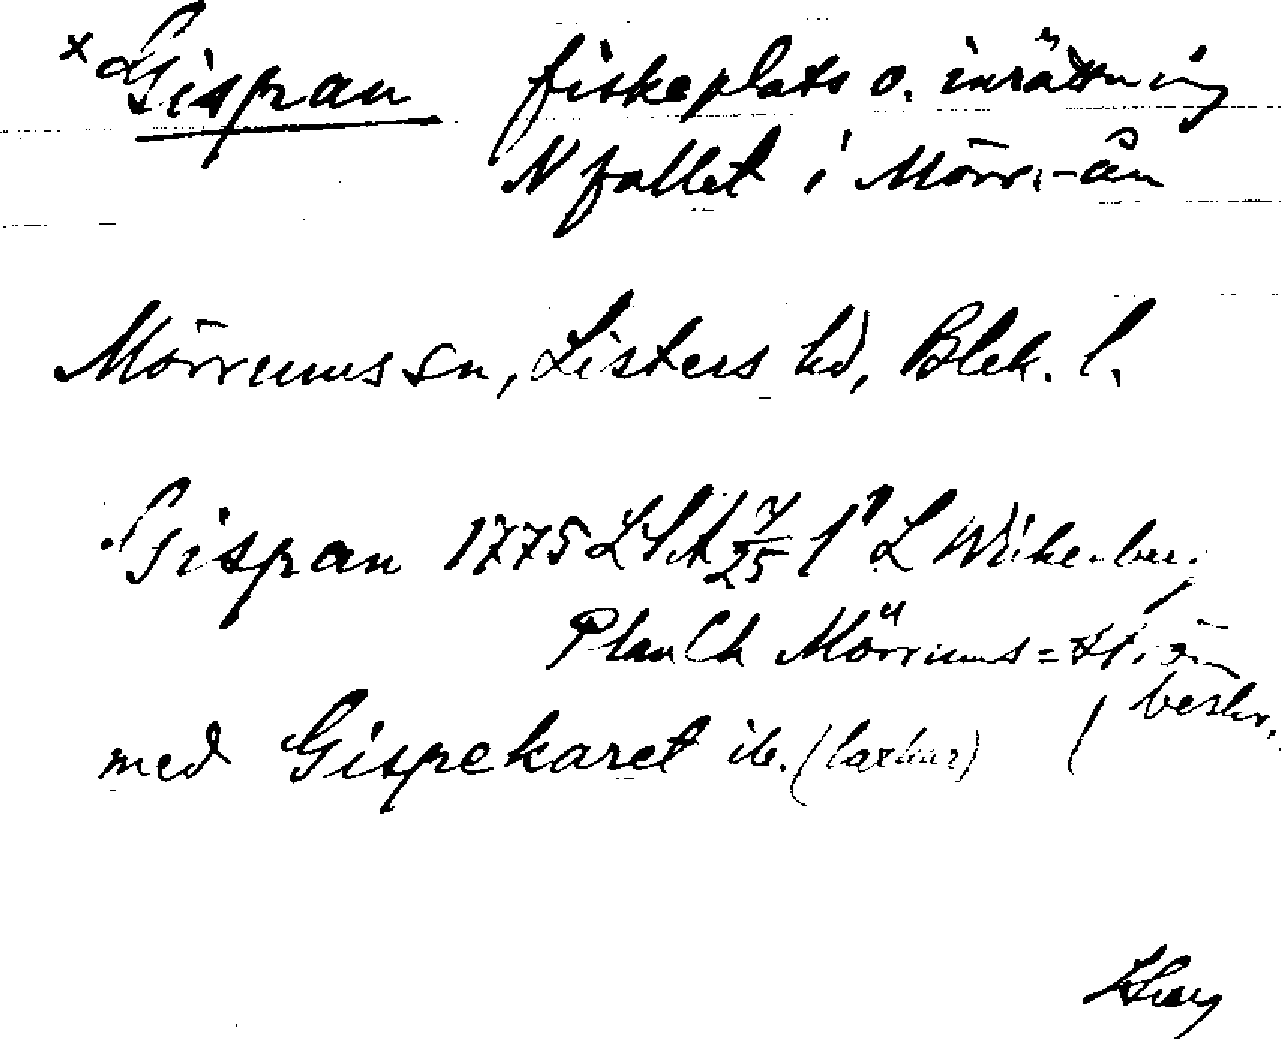 x Gispan fiskeplats o. inrättning
N fallet i Mörr.-ån
Mörrums sn, Listers hd, Blek. l.
Gispan 1775 LSA 7/25 1 L
Plan Ch Mörrums=ström
beskr.
med Gispekaret ib. (laxkar)